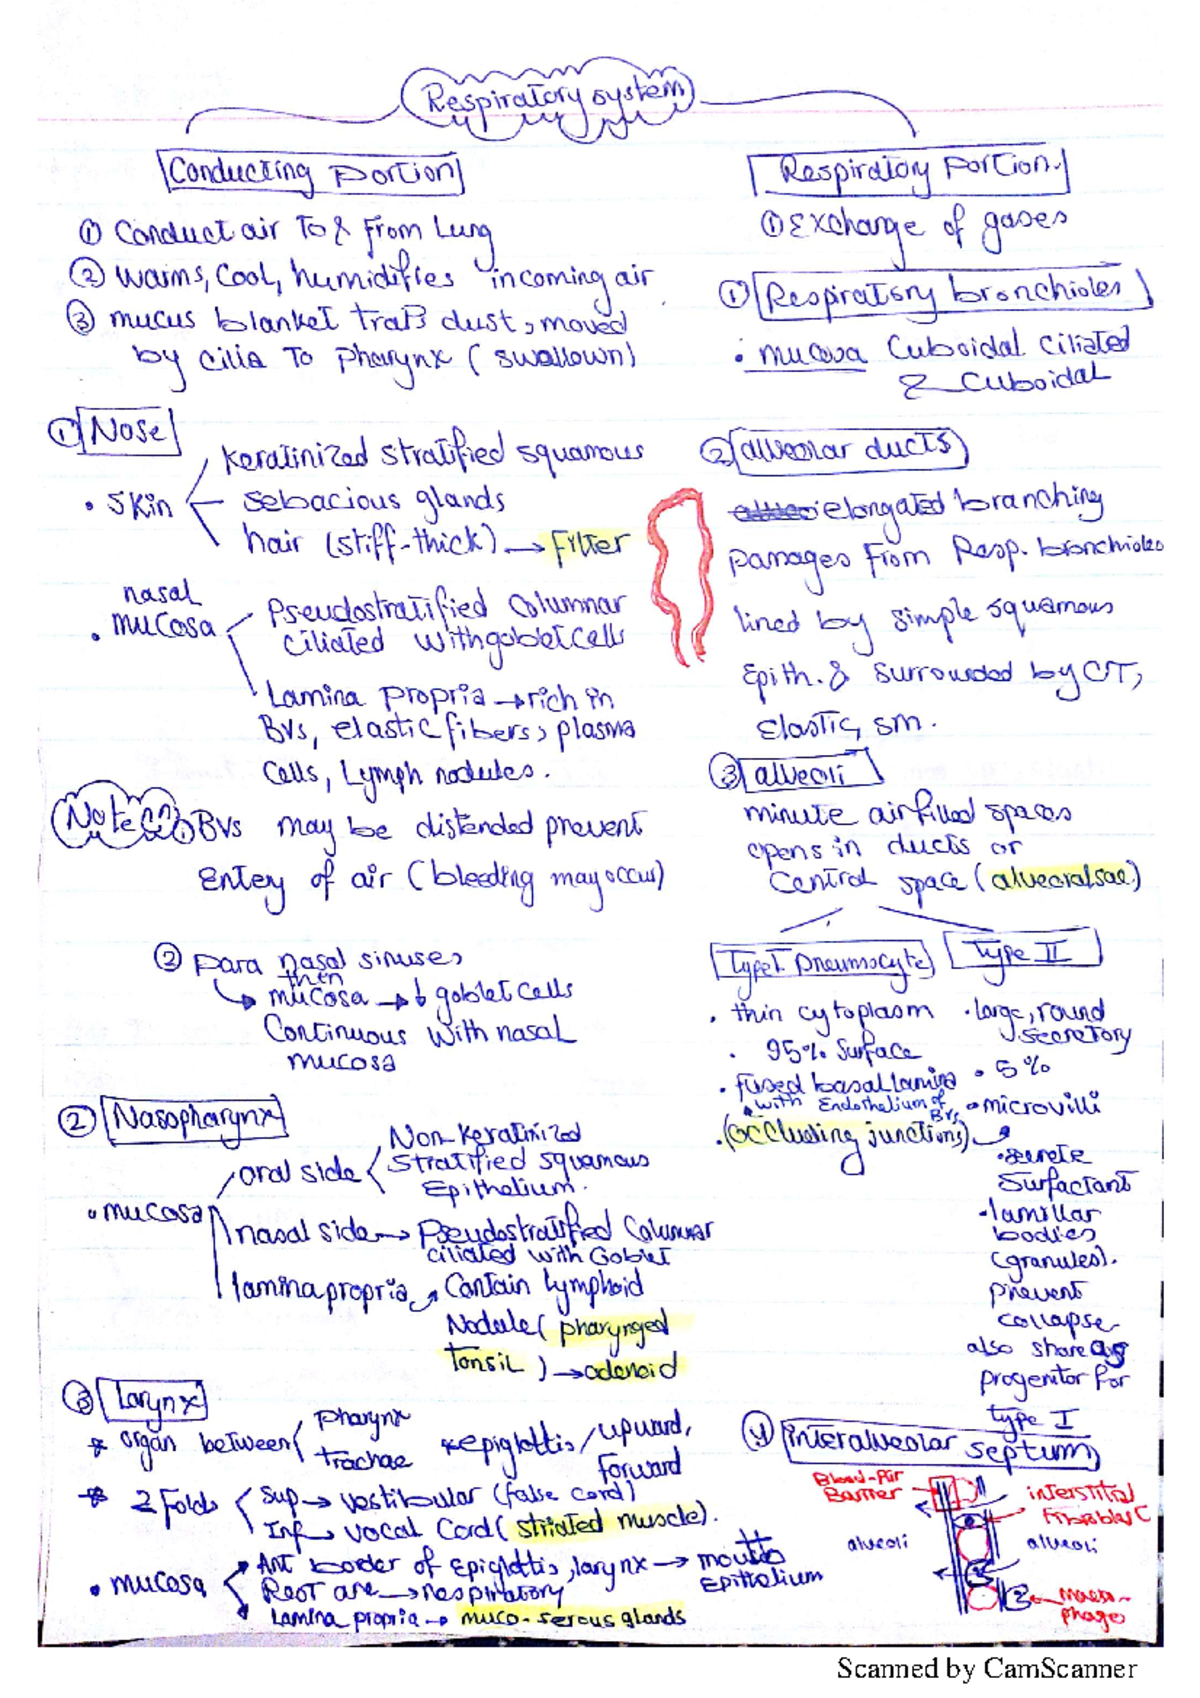 Respiratory system
Conducting Portion
① Conduct air To & From Lung
② warms, Cool, humidifies incoming air
③ mucus blanket traps dust, moved
by cilia To pharynx (swallown)
① Nose
• Skin
Keratinized stratified squamous
sebacious glands
hair (stiff-thick) → Filter
• nasal
mucosa
Pseudostratified Columnar
ciliated with goblet cells
Lamina propria → rich in
BVs, elastic fibers, plasma
cells, Lymph nodules.
Note
BVs may be distended prevent
Entery of air (bleeding may occur)
② Para nasal sinuses
thin
mucosa → ↓ goblet cells
Continuous with nasal
mucosa
② Nasopharynx
• mucosa
oral side
Non-Keratinized
Stratified squamous
Epithelium.
nasal side → Pseudostratified Columnar
ciliated with Goblet
lamina propria → Contain lymphoid
Nodule (pharyngeal
Tonsil) → adenoid
③ Larynx
* organ between
pharynx
trachae
* epiglottis / upward,
Forward
* 2 Folds
Sup → vestibular (false cord)
Inf → vocal Cord (striated muscle).
• mucosa
Ant border of Epiglottis, larynx → mouth
Epithelium
Rest are → respiratory
Lamina propria → muco-serous glands
Respiratory Portion.
① Exchange of gases
① Respiratory bronchioles
• mucosa Cuboidal ciliated
& Cuboidal
② alveolar ducts
elongated branching
passages From Resp. bronchioles
lined by simple squamous
Epith. & surrounded by CT,
Elastic, sm.
③ alveoli
minute air filled spaces
opens in ducts or
Central space (alveoral sac)
Type I pneumocyte
• thin cytoplasm
• 95% Surface
• fused basal lamina
with Endothelium of
BVs
• (occluding junctions)
Type II
• large, round
secretory
• 5%
• microvilli
• secrete
Surfactant
- lamillar
bodies
(granules).
prevent
collapse
also share as
progenitor for
type I
④ interalveolar septum
Blood-Air
Barrier
alveoli
interstitial
Fibroblast C
alveoli
macro-
phage
Scanned by CamScanner